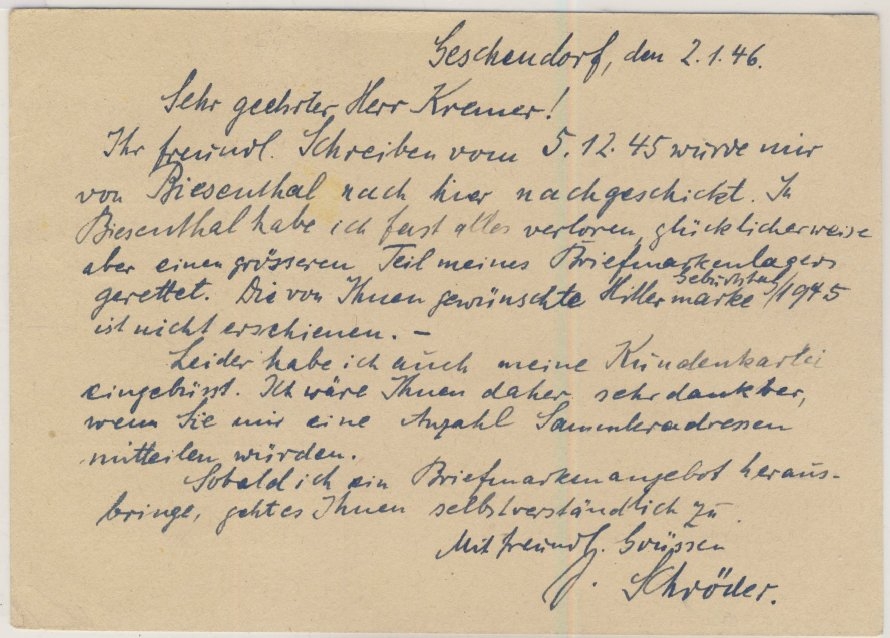 Geschendorf, den 2.1.46.
Sehr geehrter Herr Kremer!
Ihr freundl. Schreiben vom 5.12.45 wurde mir
von Biesenthal nach hier nachgeschickt. In
Biesenthal habe ich fast alles verloren, glücklicherweise
aber einen grösseren Teil meines Briefmarkenlagers
gerettet. Die von Ihnen gewünschte Hitler Geburtstag marke 1945
ist nicht erschienen. –
Leider habe ich auch meine Kundenkartei
eingebüsst. Ich wäre Ihnen daher sehr dankbar,
wenn Sie mir eine Anzahl Sammleradressen
mitteilen würden.
Sobald ich ein Briefmarkenangebot heraus-
bringe, geht es Ihnen selbstverständlich zu.
Mit freundl. Grüssen
Schröder.